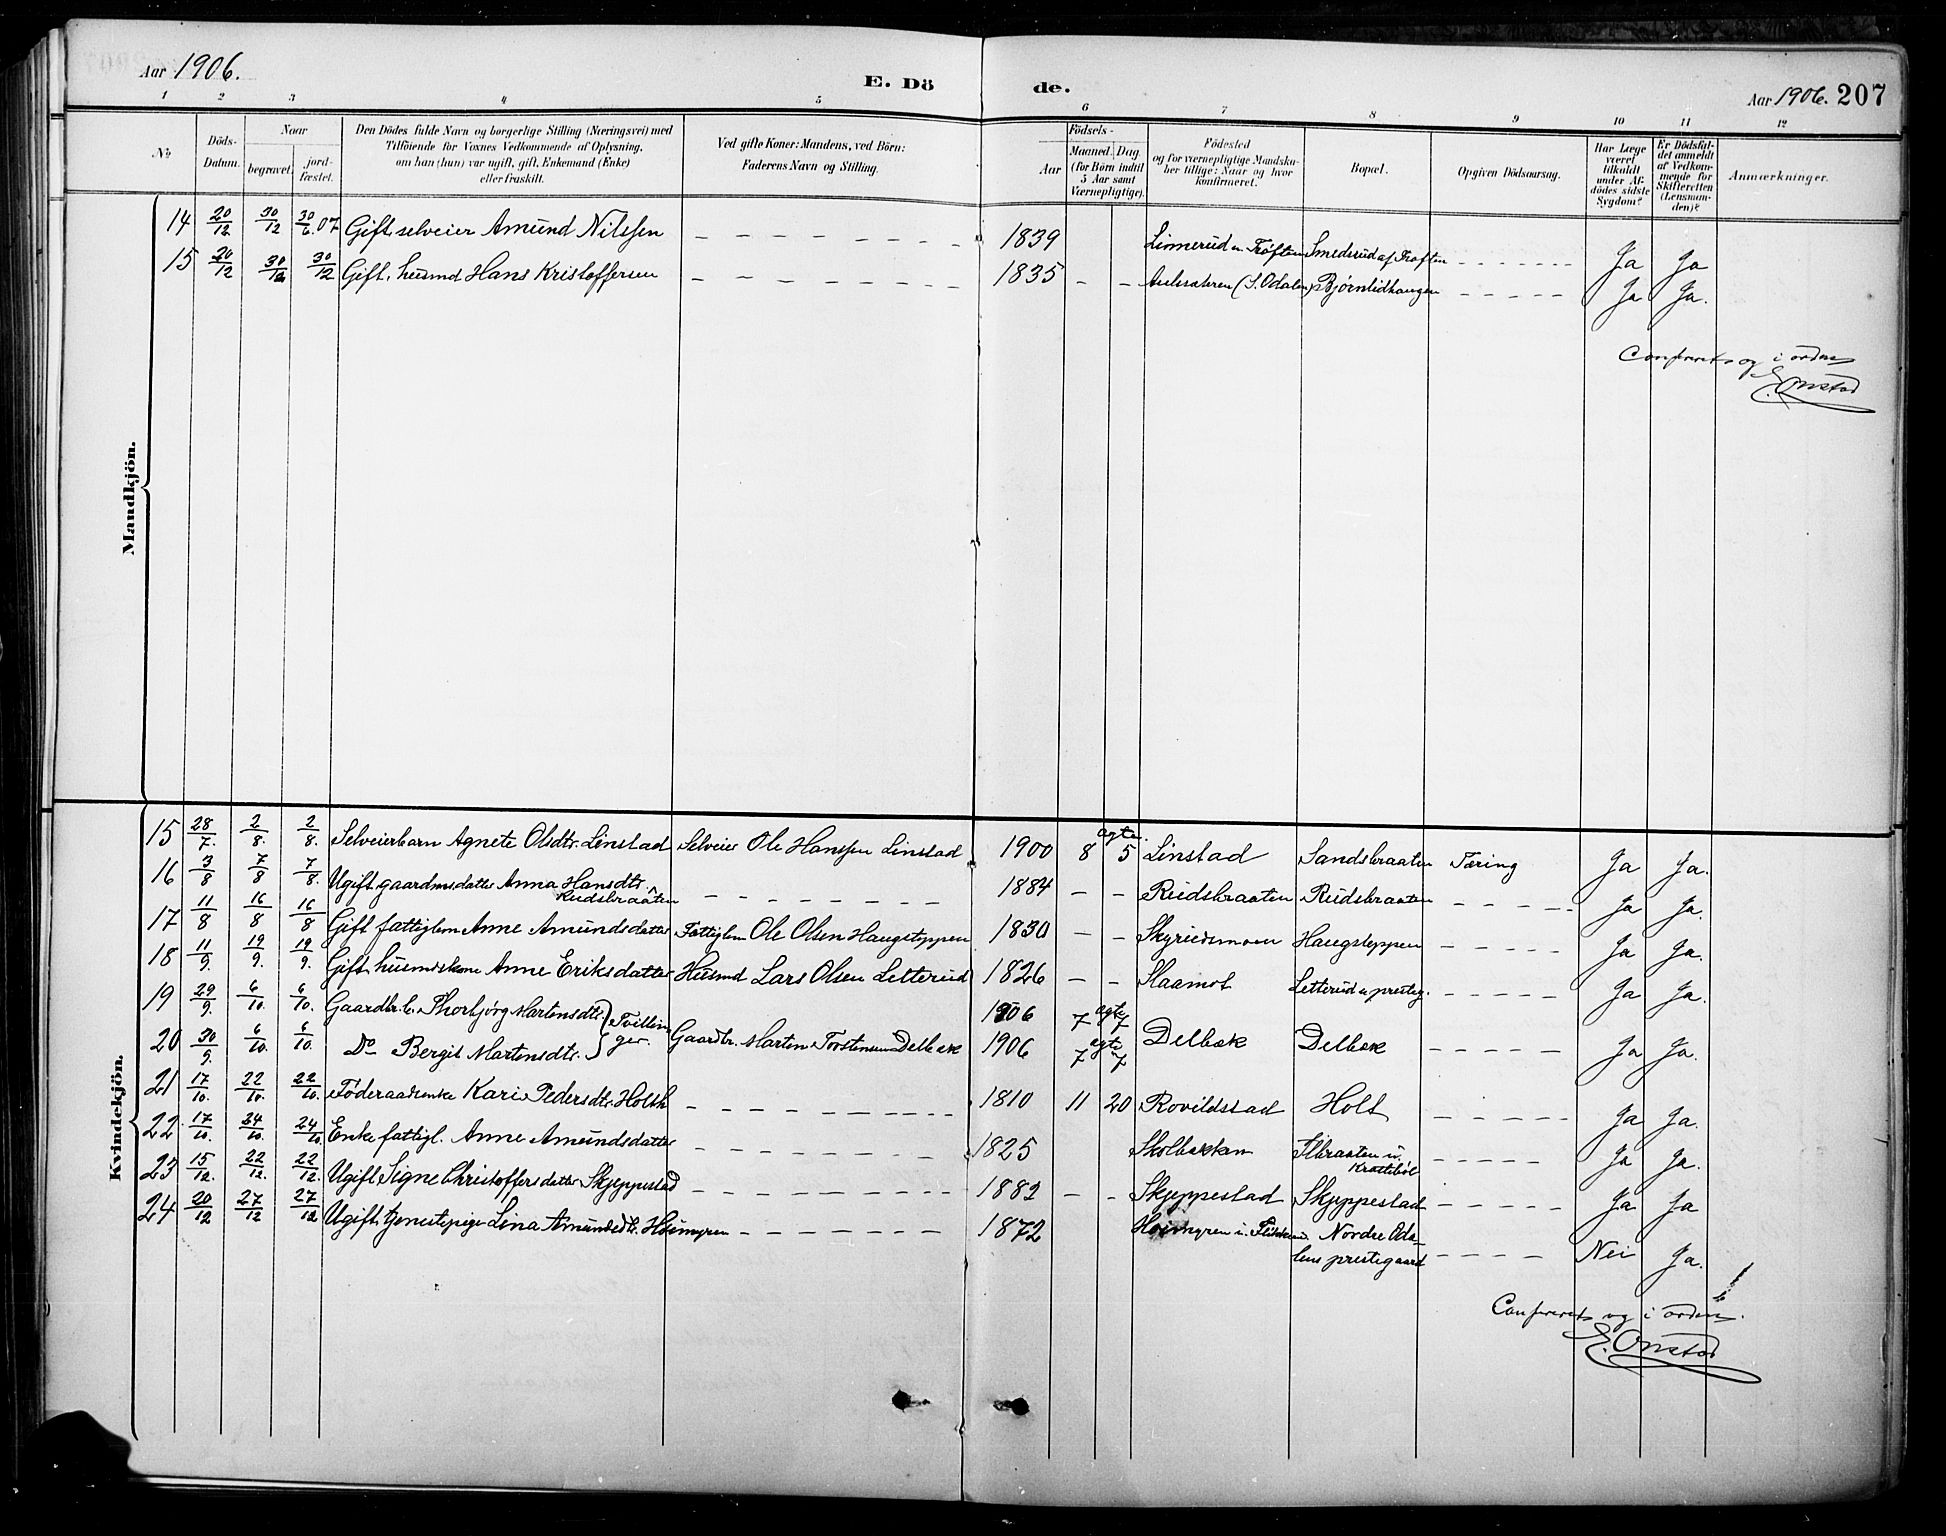 Aar 1906.
E. Dö de.
Aar 1906. 207
1 2 3 4 5 6 7 8 9 10 11 12
No
Döds-Datum.
Naar
begravet.
jord-fæstet.
Den Dödes fulde Navn og borgerlige Stilling (Næringsvei) med
Tilföiende for Voxnes Vedkommende af Oplysning,
om han (hun) var ugift, gift, Enkemand (Enke)
eller fraskilt.
Ved gifte Koner: Mandens, ved Börn:
Faderens Navn og Stilling.
Födsels-
Aar
Maaned. Dag
(for Börn indtil
5 Aar samt
Værnepligtige).
Födested
og for værnepligtige Mandskaber tillige: Naar og hvor
konfirmeret.
Bopæl.
Opgiven Dödsaarsag.
Har Læge
været
tilkaldt
under Afdödes sidste
Sygdom?
Er Dödsfaldet anmeldt
af Vedkommende for
Skifteretten
(Lensmanden)?
Anmærkninger.
Mandkjön.
14 20/12 30/12 30/6.07 Gift, selveier Amund Nilssen 1839 Linnerud u. Trøften Smedsrud af Trøften Ja Ja
15 20/12 30/12 30/12 Gift, husmd Hans Kristoffersen 1835 (S. Odalen) Bjørnlidhaugen Ja Ja.
Confereret og i orden
E. Onstad
Kvindekjön.
15 28/7. 2/8. 2/8. Selveierbarn Agnete Olsdtr. Linstad Selveier Ole Hanssen Linstad 1900 8 5 agte. Linstad Sandsbraaten Tæring Ja Ja.
16 3/8 7/8 7/8. Ugift gaardmsdatter Anna Hansdtr. Rudsbraaten 1884 Rudsbraaten Rudsbraaten Ja Ja.
17 11/8 16/8 16/8 Gift fattiglem Anne Amundsdatter Fattiglem Ole Olsen Haugsteppen 1830 Skyrudsmoen Haugsteppen Ja Ja.
18 11/9. 19/9. 19/9. Gift, husmdskone Anne Eriksdatter Husmd Lars Olsen Letterud 1826 Slaamot Letterud u. presteg. Ja Ja.
19 29/9. 6/10. 6/10. Gaardbr. b. Thorbjørg Martensdtr. Tvillinger. 1906 7 7 agte
20 30/9. 6/10. 6/10. Do Bergit Martensdtr. Gaardbr. Marten Torstensen Delbæk 1906 7 7 agte Delbæk Delbæk Ja Ja.
21 17/10. 22/10. 22/10. Føderaadsenke Kari Pedersdtr. Holth 1810 11 20 Rovildstad Holt Ja Ja.
22. 17/10. 24/10. 24/10 Enke fattigl. Anne Amundsdatter 1825 Skolbækken Ilbraaten u. Ja Ja.
23 15/12. 22/12. 22/12. Ugift, Signe Christoffersdatter Skjeppestad 1882 Skjeppestad Skjeppestad Ja Ja
24 20/12 27/12 27/12 Ugift, tjenestepige Lina Amundsdtr. Høimyren 1872 Høimyren u. Nordre Odalens prestegaard Nei Ja.
Confereret og i orden.
E. Onstad